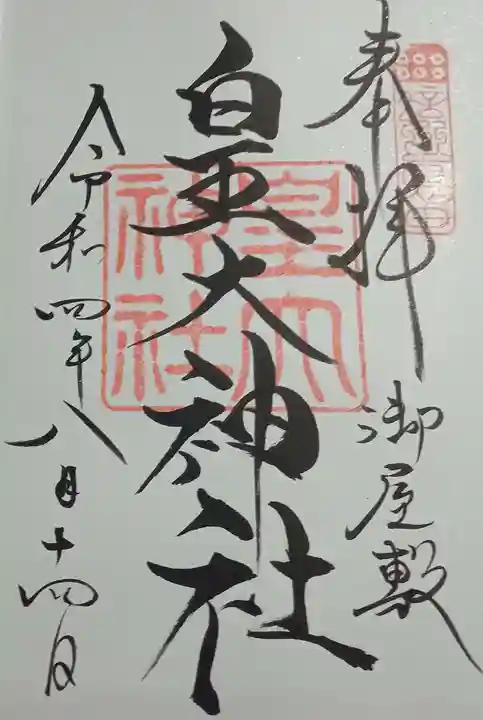 奉拝
御屋敷
皇大神社
皇大
神社
令和四年八月十四日